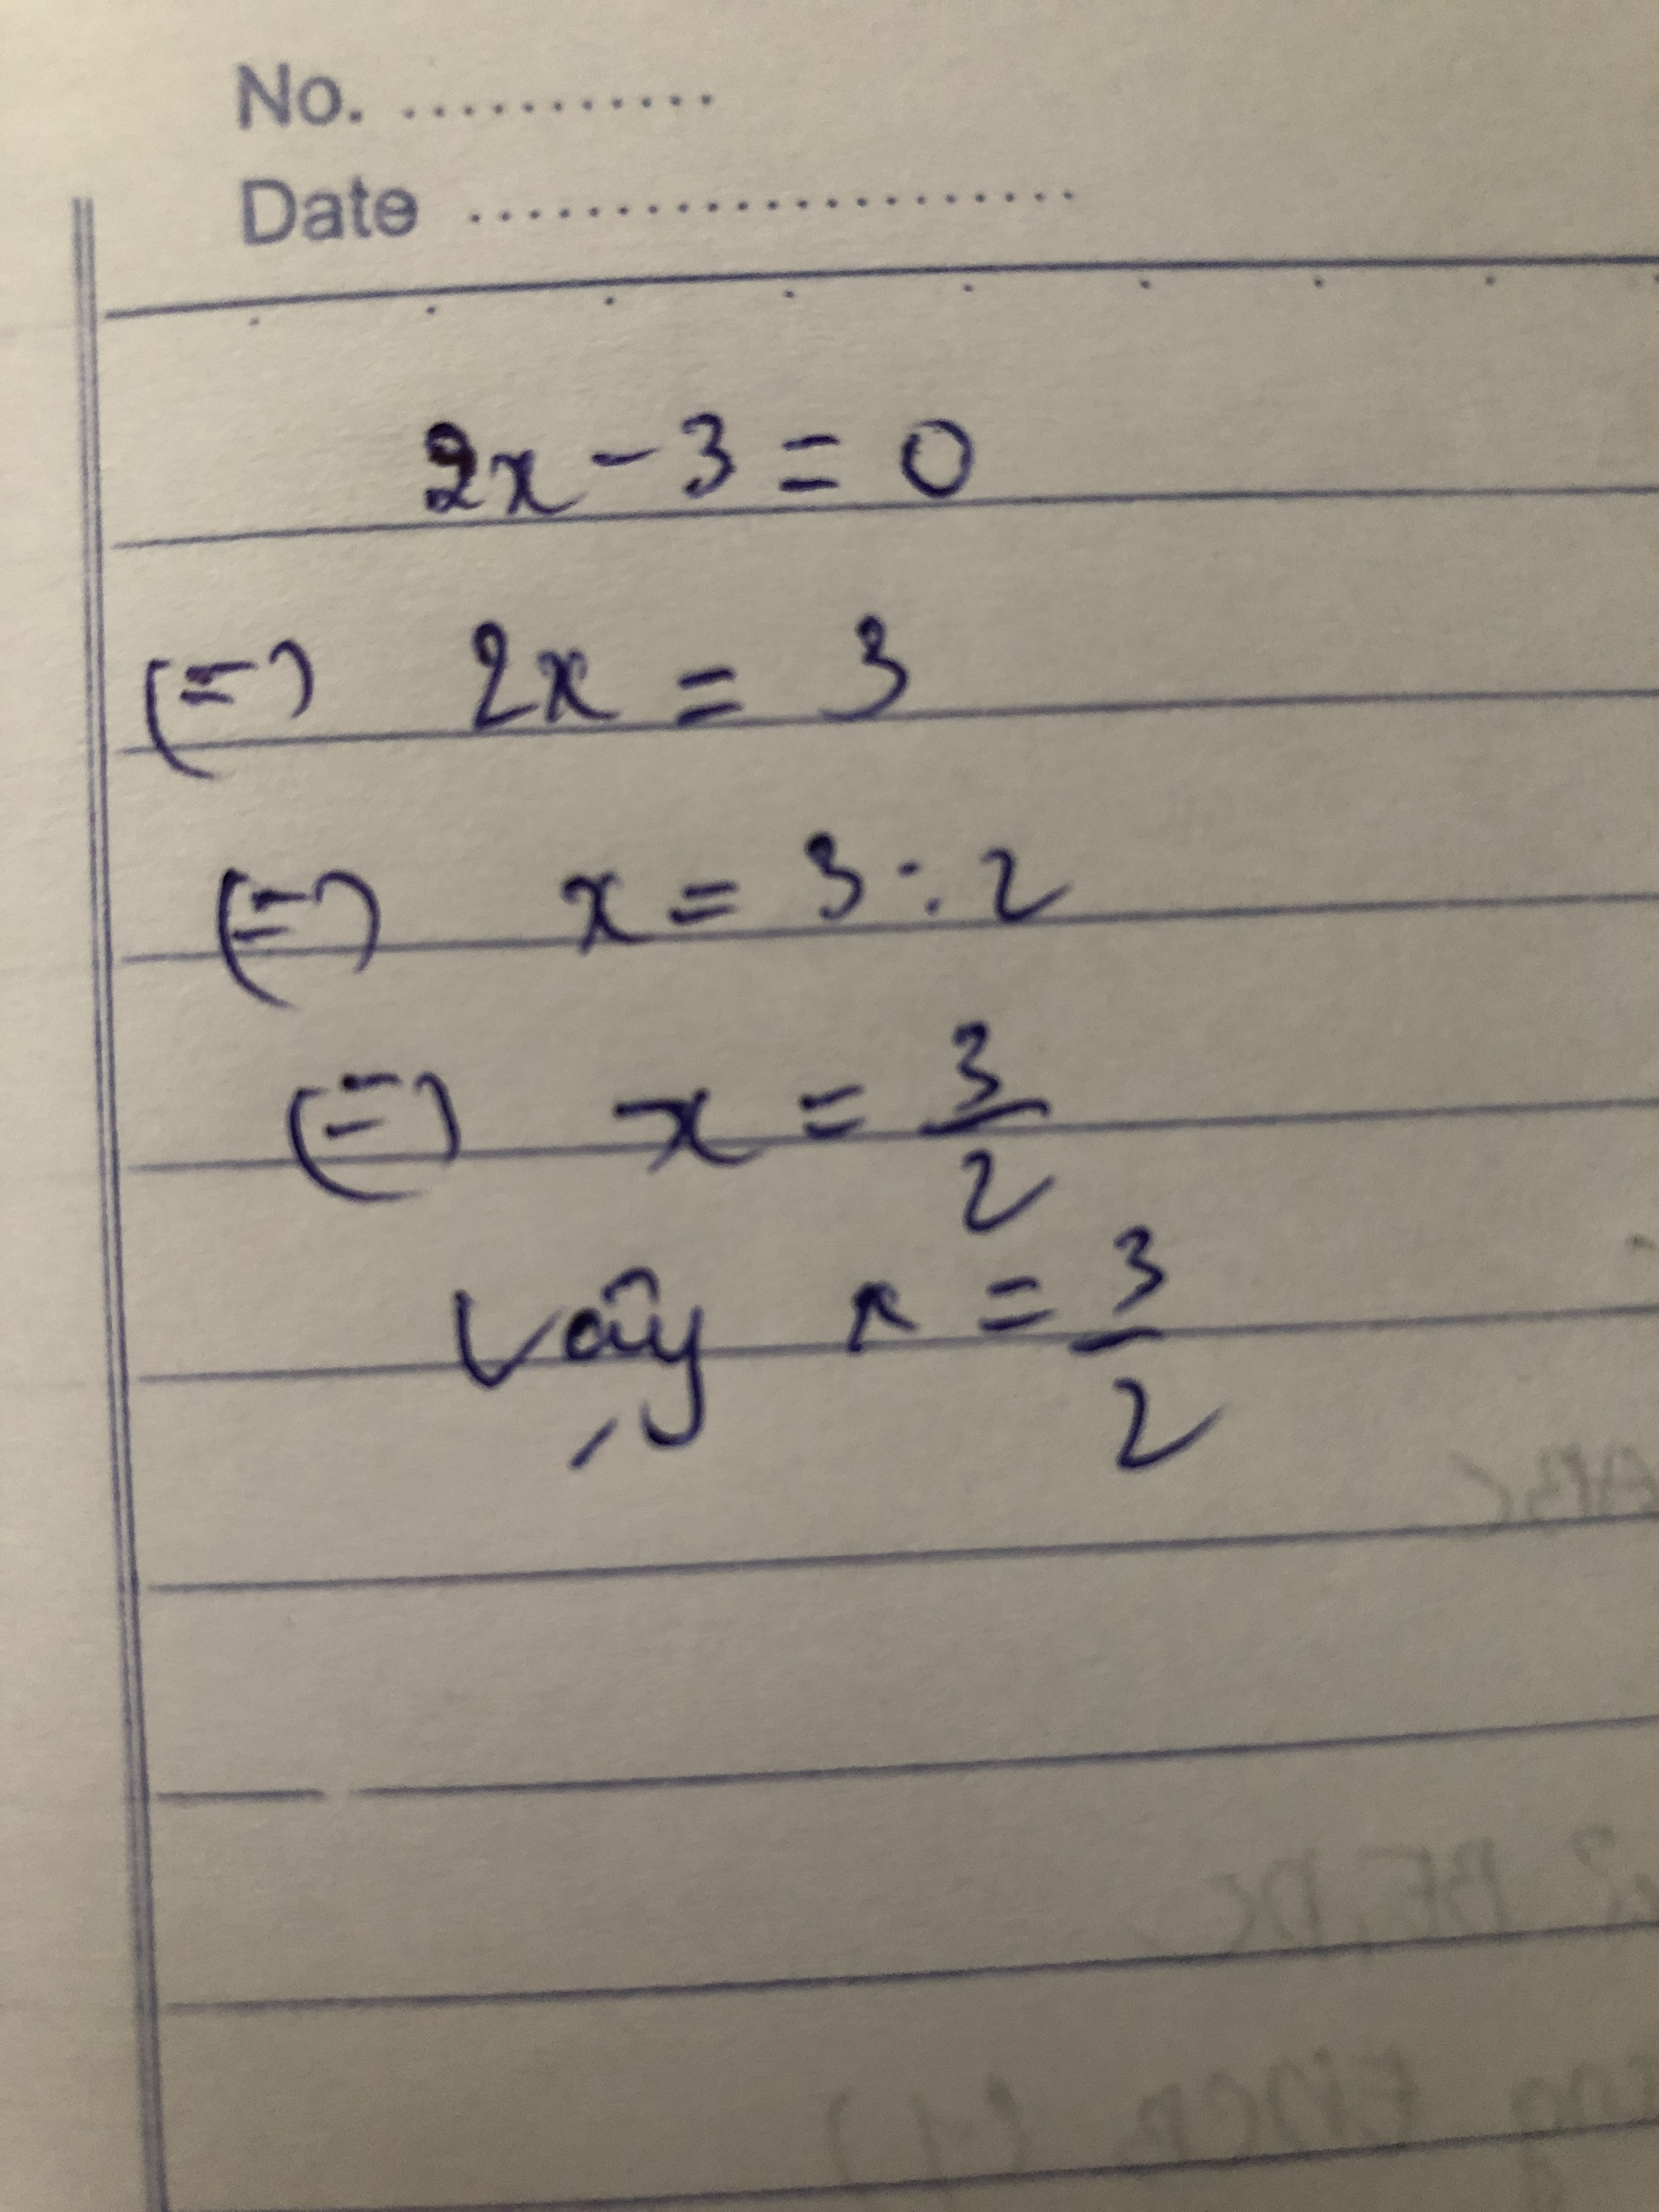 No. ............
Date .....................
2x - 3 = 0
(=) 2x = 3
(=) x = 3 : 2
(=) x = 3/2
Vậy x = 3/2